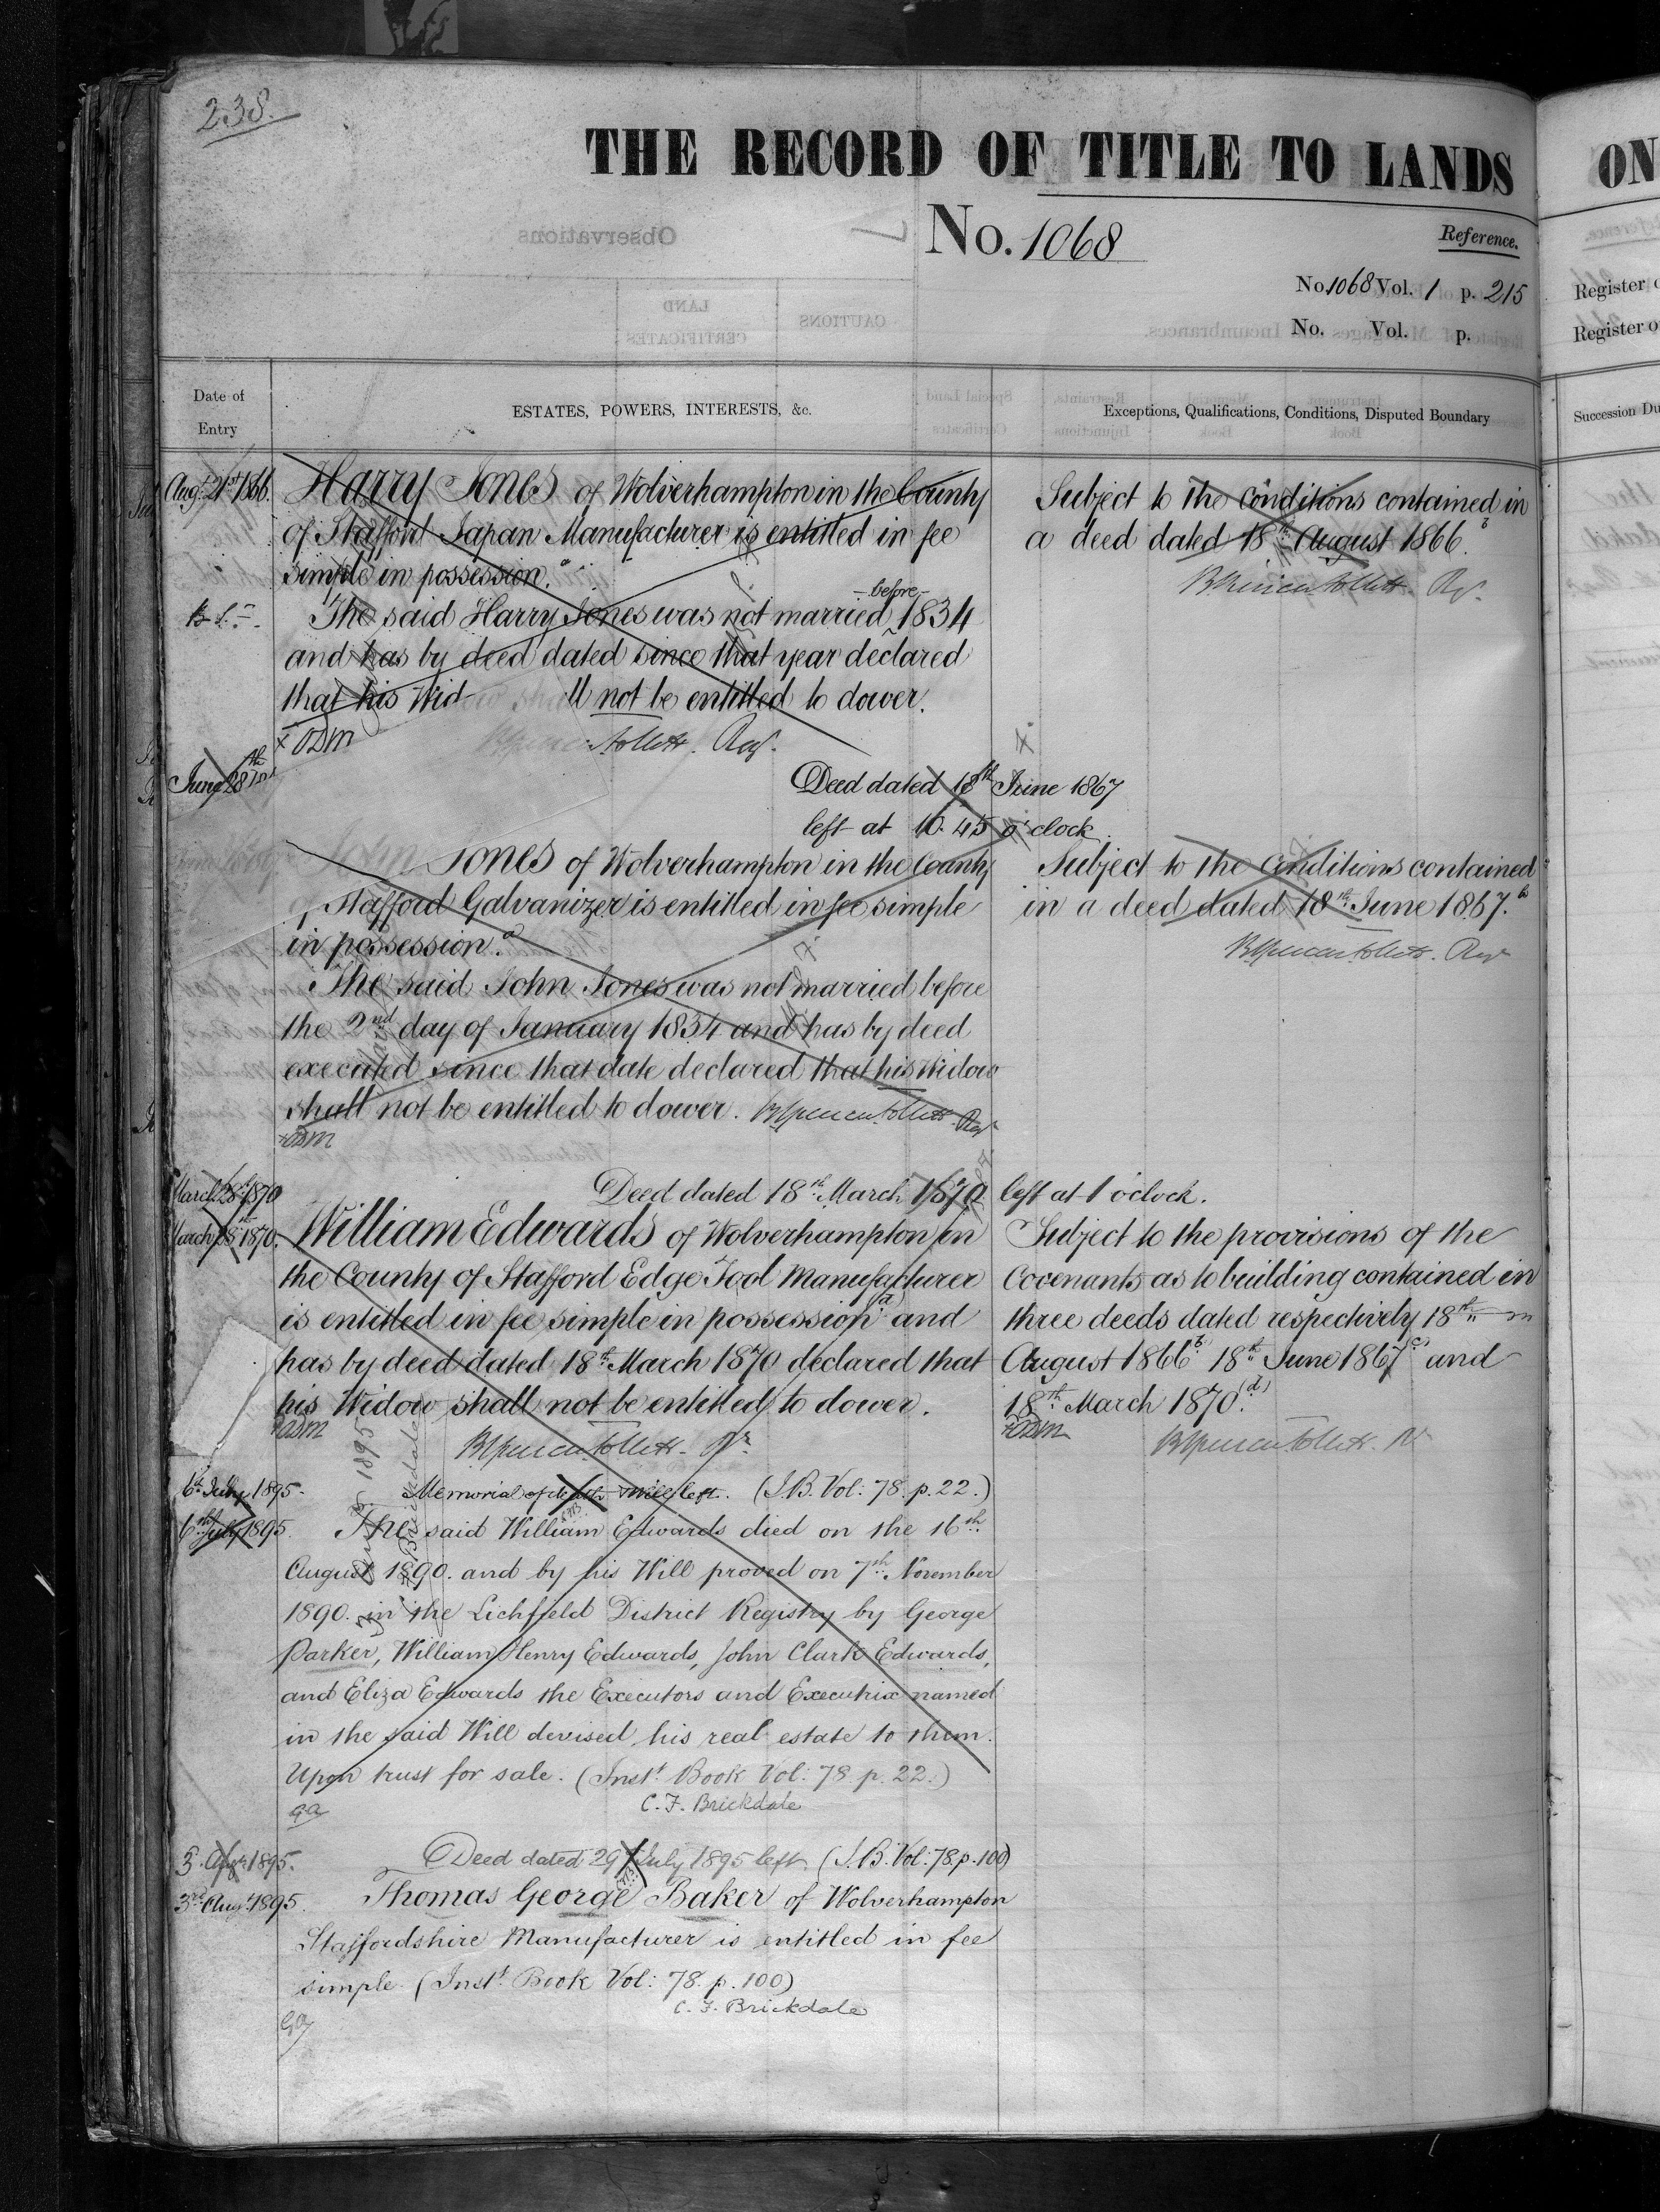 238.
THE RECORD OF TITLE TO LANDS
No. 1068
Reference.
No. 1068 Vol. 1 p. 215
No. Vol. p.
Date of Entry
ESTATES, POWERS, INTERESTS, &c.
Exceptions, Qualifications, Conditions, Disputed Boundary
Augt. 21st 1866.
Harry Jones of Wolverhampton in the County
of Stafford Japan Manufacturer is entitled in fee
simple in possession.a
Subject to the conditions contained in
a deed dated 18th August 1866.b
The said Harry Jones was not married before 1834
and has by deed dated since that year declared
that his Widow shall not be entitled to dower.
June 28th
Deed dated 18th June 1867
left at 10.45 o'clock.
John Jones of Wolverhampton in the County
of Stafford Galvanizer is entitled in fee simple
in possession.a
Subject to the conditions contained
in a deed dated 18th June 1867.b
The said John Jones was not married before
the 2nd day of January 1834 and has by deed
executed since that date declared that his Widow
shall not be entitled to dower.
March 28th 1870
Deed dated 18th March 1870 left at 1 o'clock.
March 28th 1870.
William Edwards of Wolverhampton in
the County of Stafford Edge Tool Manufacturer
is entitled in fee simple in possession (a) and
has by deed dated 18th March 1870 declared that
his Widow shall not be entitled to dower.
Subject to the provisions of the
Covenants as to building contained in
three deeds dated respectively 18th
August 1866 b) 18th June 1867 c) and
18th March 1870.(d)
6th July 1895.
Memorial of death & will left. (I.B. Vol: 78. p. 22.)
6th July 1895.
The said William Edwards died on the 16th
August 1890. and by his Will proved on 7th November
1890. in the Lichfield District Registry by George
Parker, William Henry Edwards, John Clark Edwards,
and Eliza Edwards the Executors and Executrix named
in the said Will devised his real estate to them.
Upon trust for sale. (Inst. Book Vol: 78. p. 22.)
C. F. Brickdale
3rd Augt. 1895.
Deed dated 29 July 1895 left. (I.B. Vol: 78 p. 100)
3rd Augt. 1895.
Thomas George Baker of Wolverhampton
Staffordshire Manufacturer is entitled in fee
simple. (Inst. Book Vol: 78. p. 100)
C. F. Brickdale
ON
Register o
Register o
Succession Du